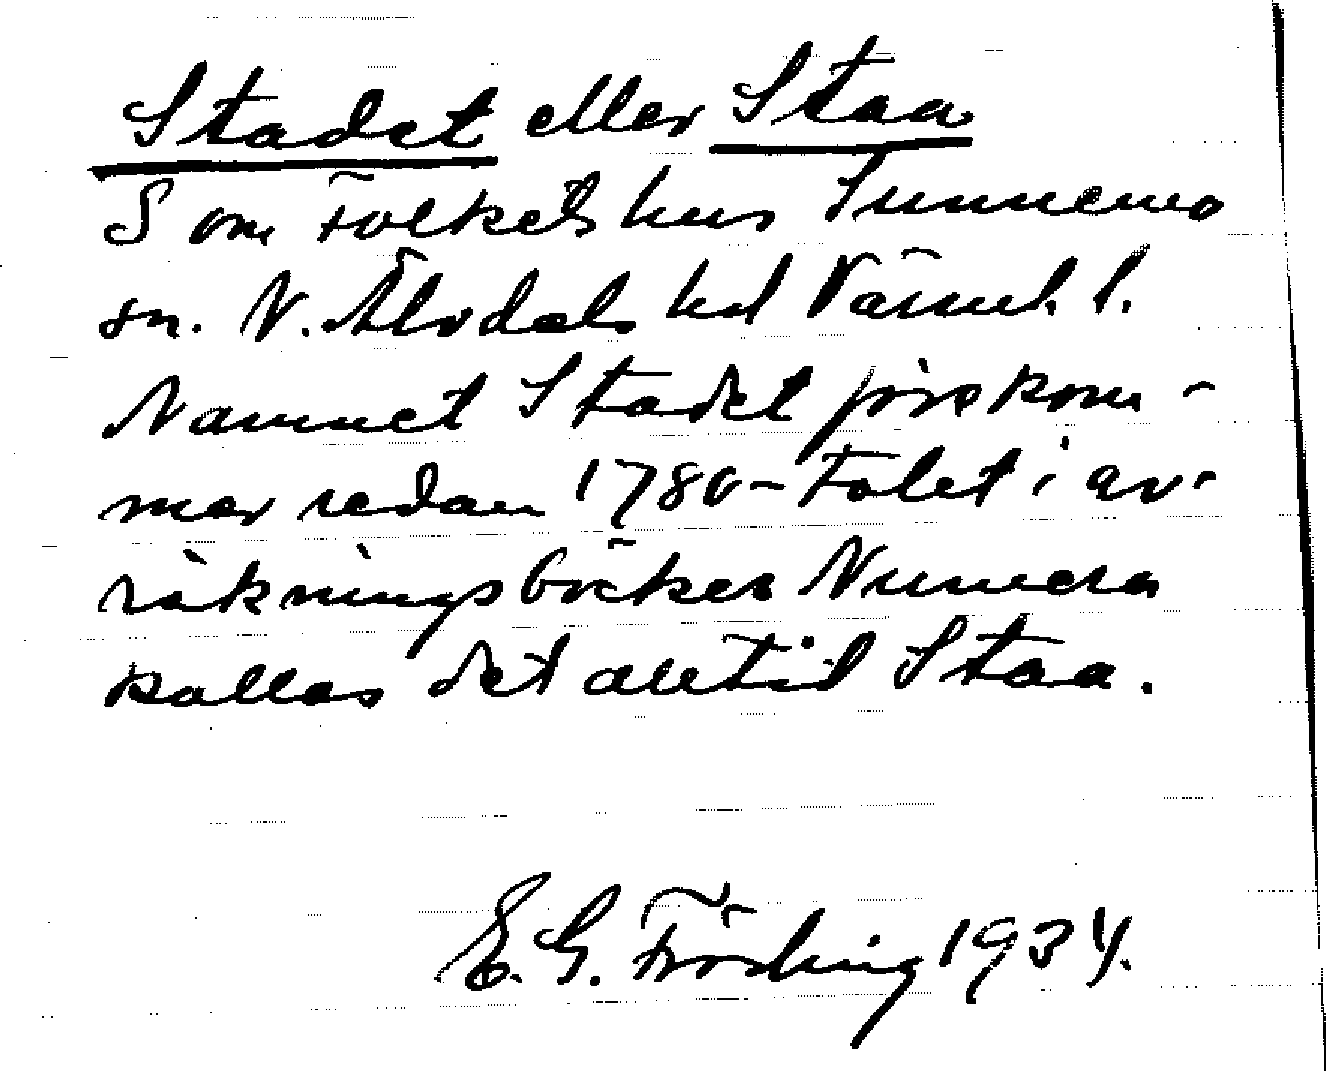 Stadet eller Staa
S om Folkets hus Sunnemo
sn. N. Älvdals hd Värml. l.
Namnet Stadet förekom-
mer redan 1780-talet i av-
räkningsböcker Numera
kallas det alltid Staa.
E. G. Fröding 1934.